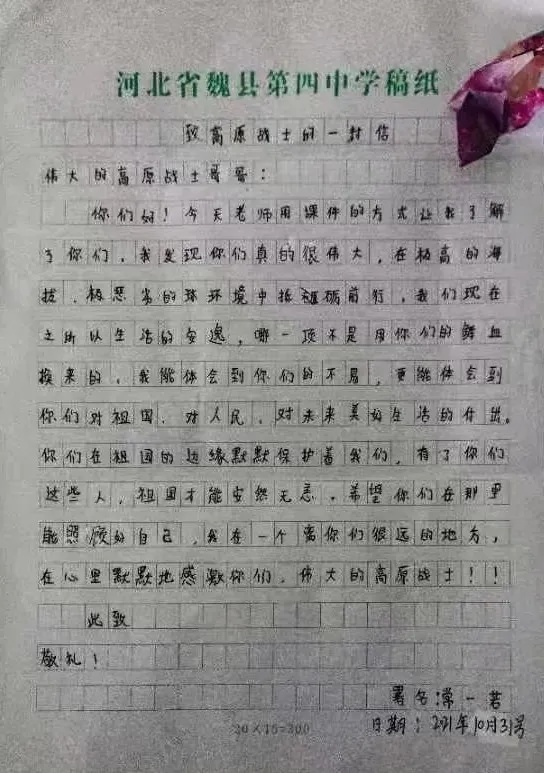 河北省魏县第四中学稿纸
致高原战士的一封信
伟大的高原战士哥哥：
你们好！今天老师用课件的方式让我了解
了你们，我发现你们真的很伟大，在极高的海
拔、极恶劣的环境中砥砺前行，我们现在
之所以生活的安逸，哪一项不是用你们的鲜血
换来的，我能体会到你们的不易，更能体会到
你们对祖国、对人民、对未来美好生活的付出。
你们在祖国的边缘默默保护着我们，有了你们
这些人，祖国才能安然无恙。希望你们在那里
能照顾好自己，我在一个离你们很远的地方，
在心里默默地感激你们，伟大的高原战士！！
此致
敬礼！
署名：常一若
日期：2021年10月31号
20×15=300